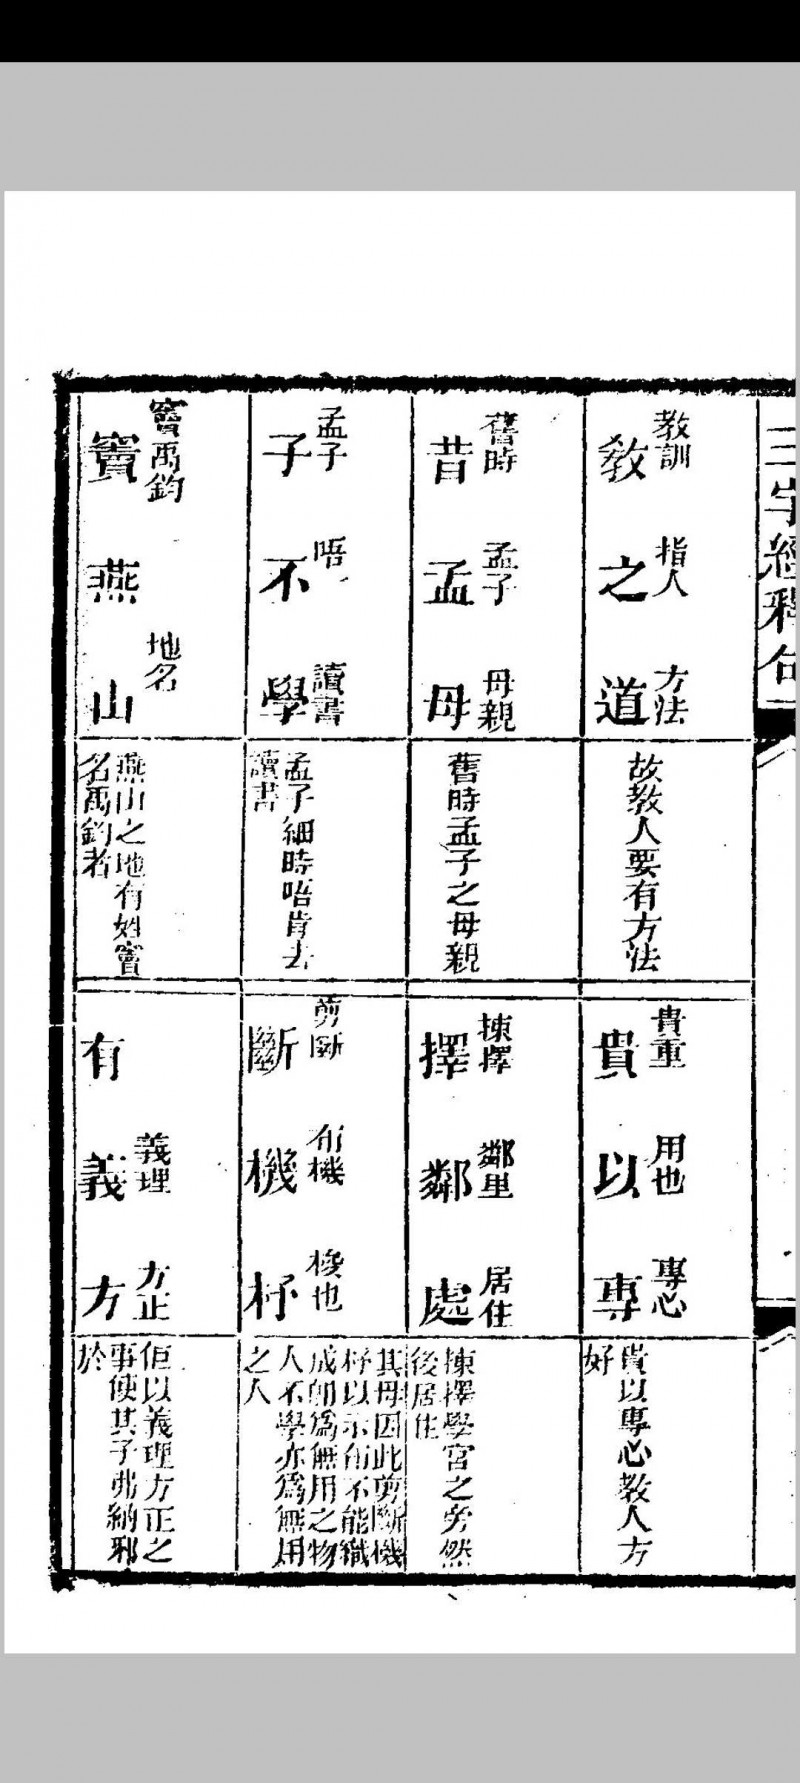 三字經釋句
教之道
教訓 指人 方法
故教人要有方法
貴以專
貴重 用也 專心
貴以專心教人方
好
昔孟母
舊時 孟子 母親
舊時孟子之母親
擇鄰處
揀擇 鄰里 居住
揀擇學宮之旁然
後居住
子不學
孟子 唔 讀書
孟子細時唔肯去
讀書
斷機杼
剪斷 布機 梭也
其母因此剪斷機
杼以示布不能織
成卽爲無用之物
人不學亦爲無用
之人
竇燕山
竇禹鈞 地名
燕山之地有姓竇
名禹鈞者
有義方
義理 方正
佢以義理方正之
事使其子弗納邪
於